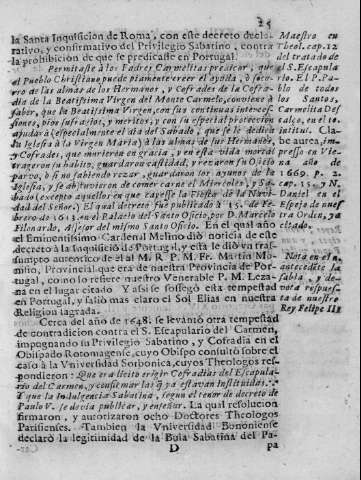 25
la Santa Inquisicion de Roma, con este decreto decla-
rativo, y confirmativo del Privilegio Sabatino, contra
la prohibicion de que se predicasse en Portugal.
Permitase à los Padres Carmelitas predicar, que
el Pueblo Christiano puede piamente creer el ayuda, ò soco-
rro de las almas de los Hermanos, y Cofrades de la Cofra-
dia de la Beatissima Virgen del Monte Carmelo, conviene à
saber, que la Beatissima Virgen, con sus continuas interces-
siones, píos sufragios, y meritos, y con su especial proteccion
ayudarà (especialmente el dia del Sabado, que se le dedicò
la Iglesia à la Virgen Maria) à las almas de sus Hermanos,
y Cofrades, que murieren en gracia, y en esta vida
traxeron su habito, guardaron castidad, y rezaron su Oficio
parvo, ò si no sabiendo rezar, guardaron los ayunos de la
Iglesia, y se abstuvieron de comer carne el Miercoles, y Sa-
bado (excepto aquellos en que cayesse la Fiesta de la Nativi-
dad del Señor.) El qual decreto fue publicado à 15. de Fe-
brero de 1613. en el Palacio del Santo Oficio, por D. Marcelo
Filonardo, Assesor del mismo Santo Oficio. En el qual año
el Eminentissimo Cardenal Melino diò noticia de este
decreto à la Inquisiciõ de Portugal, y esta le diò vn tras-
sumpto autentico de el al M. R. P. M. Fr. Martin Mo-
nis, Provincial que era de nuestra Provincia de Por-
tugal, como lo refiere nuestro Venerable P. M. Leza-
na en el lugar citado. Y assi se sossegò esta tempestad
en Portugal, y saliò mas claro el Sol Elias en nuestra
Religion sagrada.
Cerca del año de 1648. se levantò otra tempestad
de contradicion contra el S. Escapulario del Carmen,
impugnando su Privilegio Sabatino, y Cofradia en el
Obispado Rotomagense, cuyo Obispo consultò sobre el
caso à la Vniversidad Sorbonica, cuyos Theologos res-
pondieron: Que era licito erigir Cofradias del Escapula-
rio del Carmen, y confirmar las q̃ ya estavan instituidas.
Y que la Indulgencia Sabatina, segun el tenor de decreto de
Paulo V. se devia publicar, y enseñar. La qual resolucion
firmaron, y autorizaron ocho Doctores Theologos
Parisienses. Tambien la Vniversidad Bononiense
declarò la legitimidad de la Bula Sabatina del Pa-
D pa
Maestro en
Theol. cap. 12
del tratado de
el S. Escapula
rio. El P. Pa-
blo de todos
los Santos,
Carmelita Des
calço, en el to.
intitul. Cla-
vis aurea, im-
presso en Vie-
na año de
1669. p. 2.
cap. 15. y N.
Daniel en el
Espejo de nues
tra Orden, ya
citado.
Nota en el
antecedēte la
sabia, y de-
vota respues-
ta de nuestro
Rey Felipe III